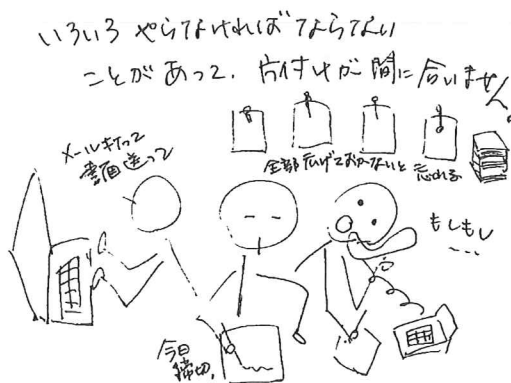 いろいろ やらなければ ならない
ことが あって、片付けが 間に 合いません。
メールキたって
書面送って
全部広げておかないと 忘れる
もしもし
....
今日
締切.